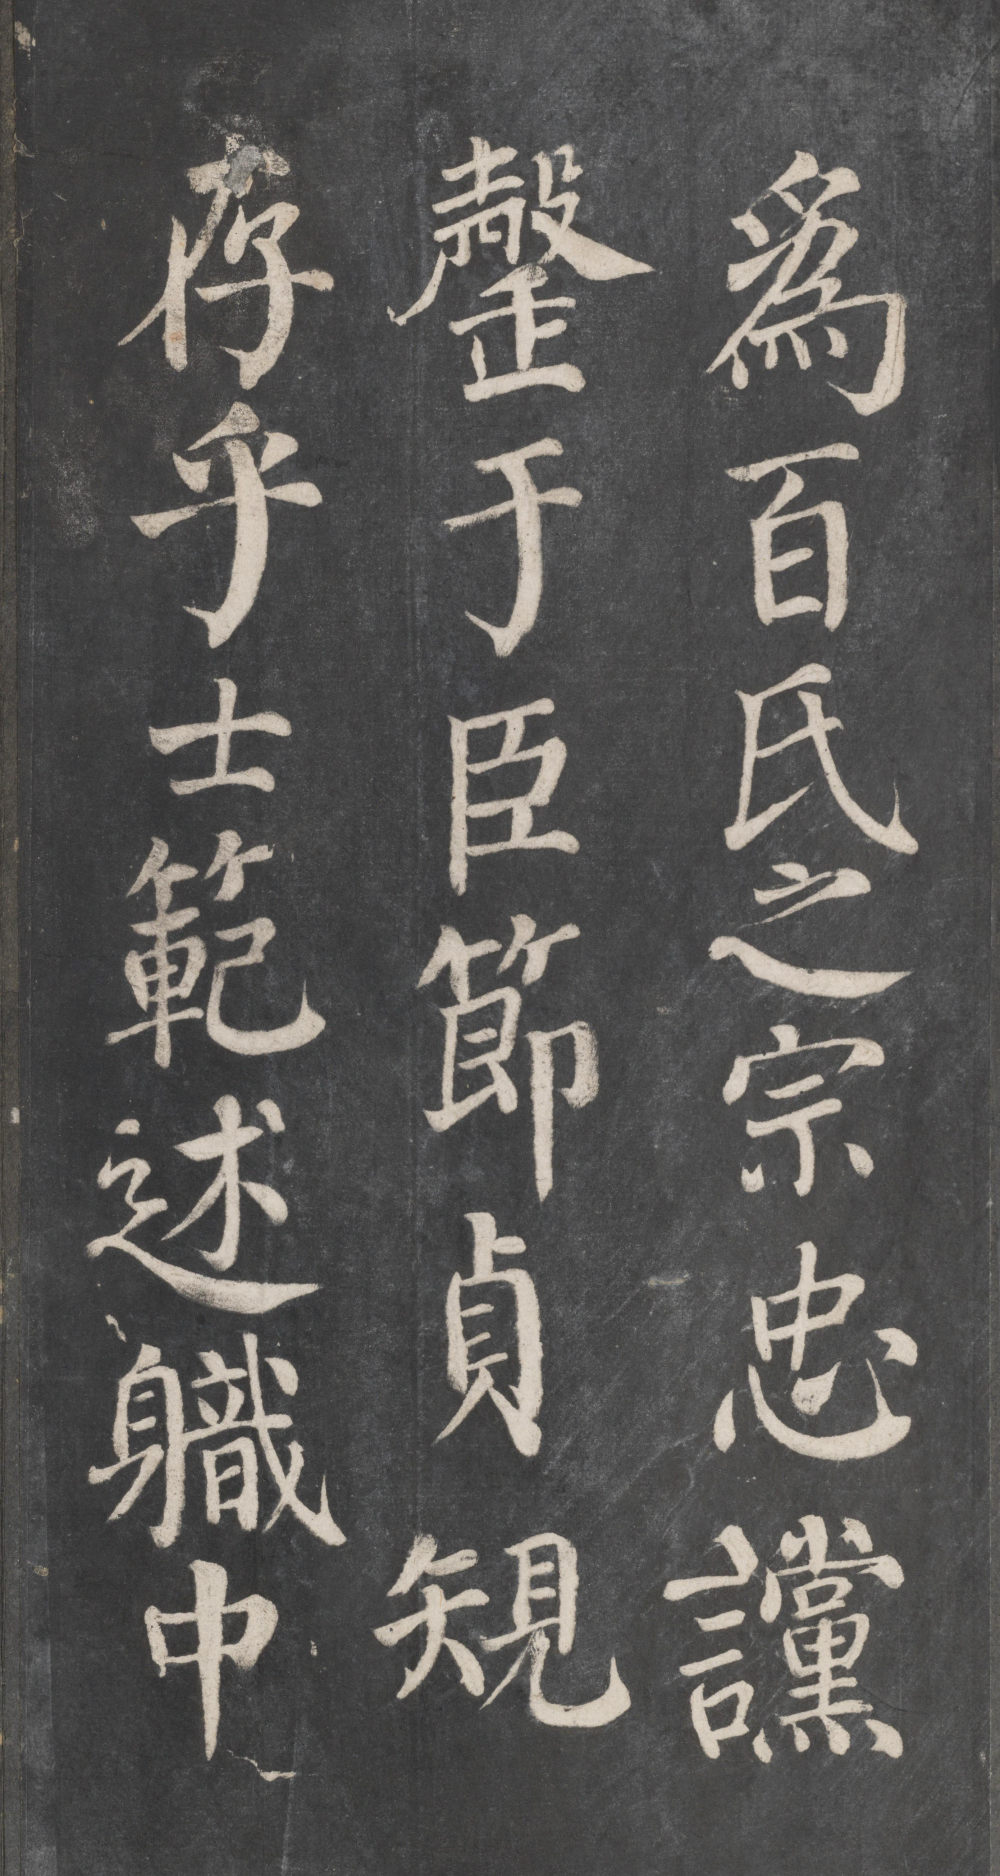 爲百氏之宗忠讜
罄于臣節貞規
存乎士範述職中